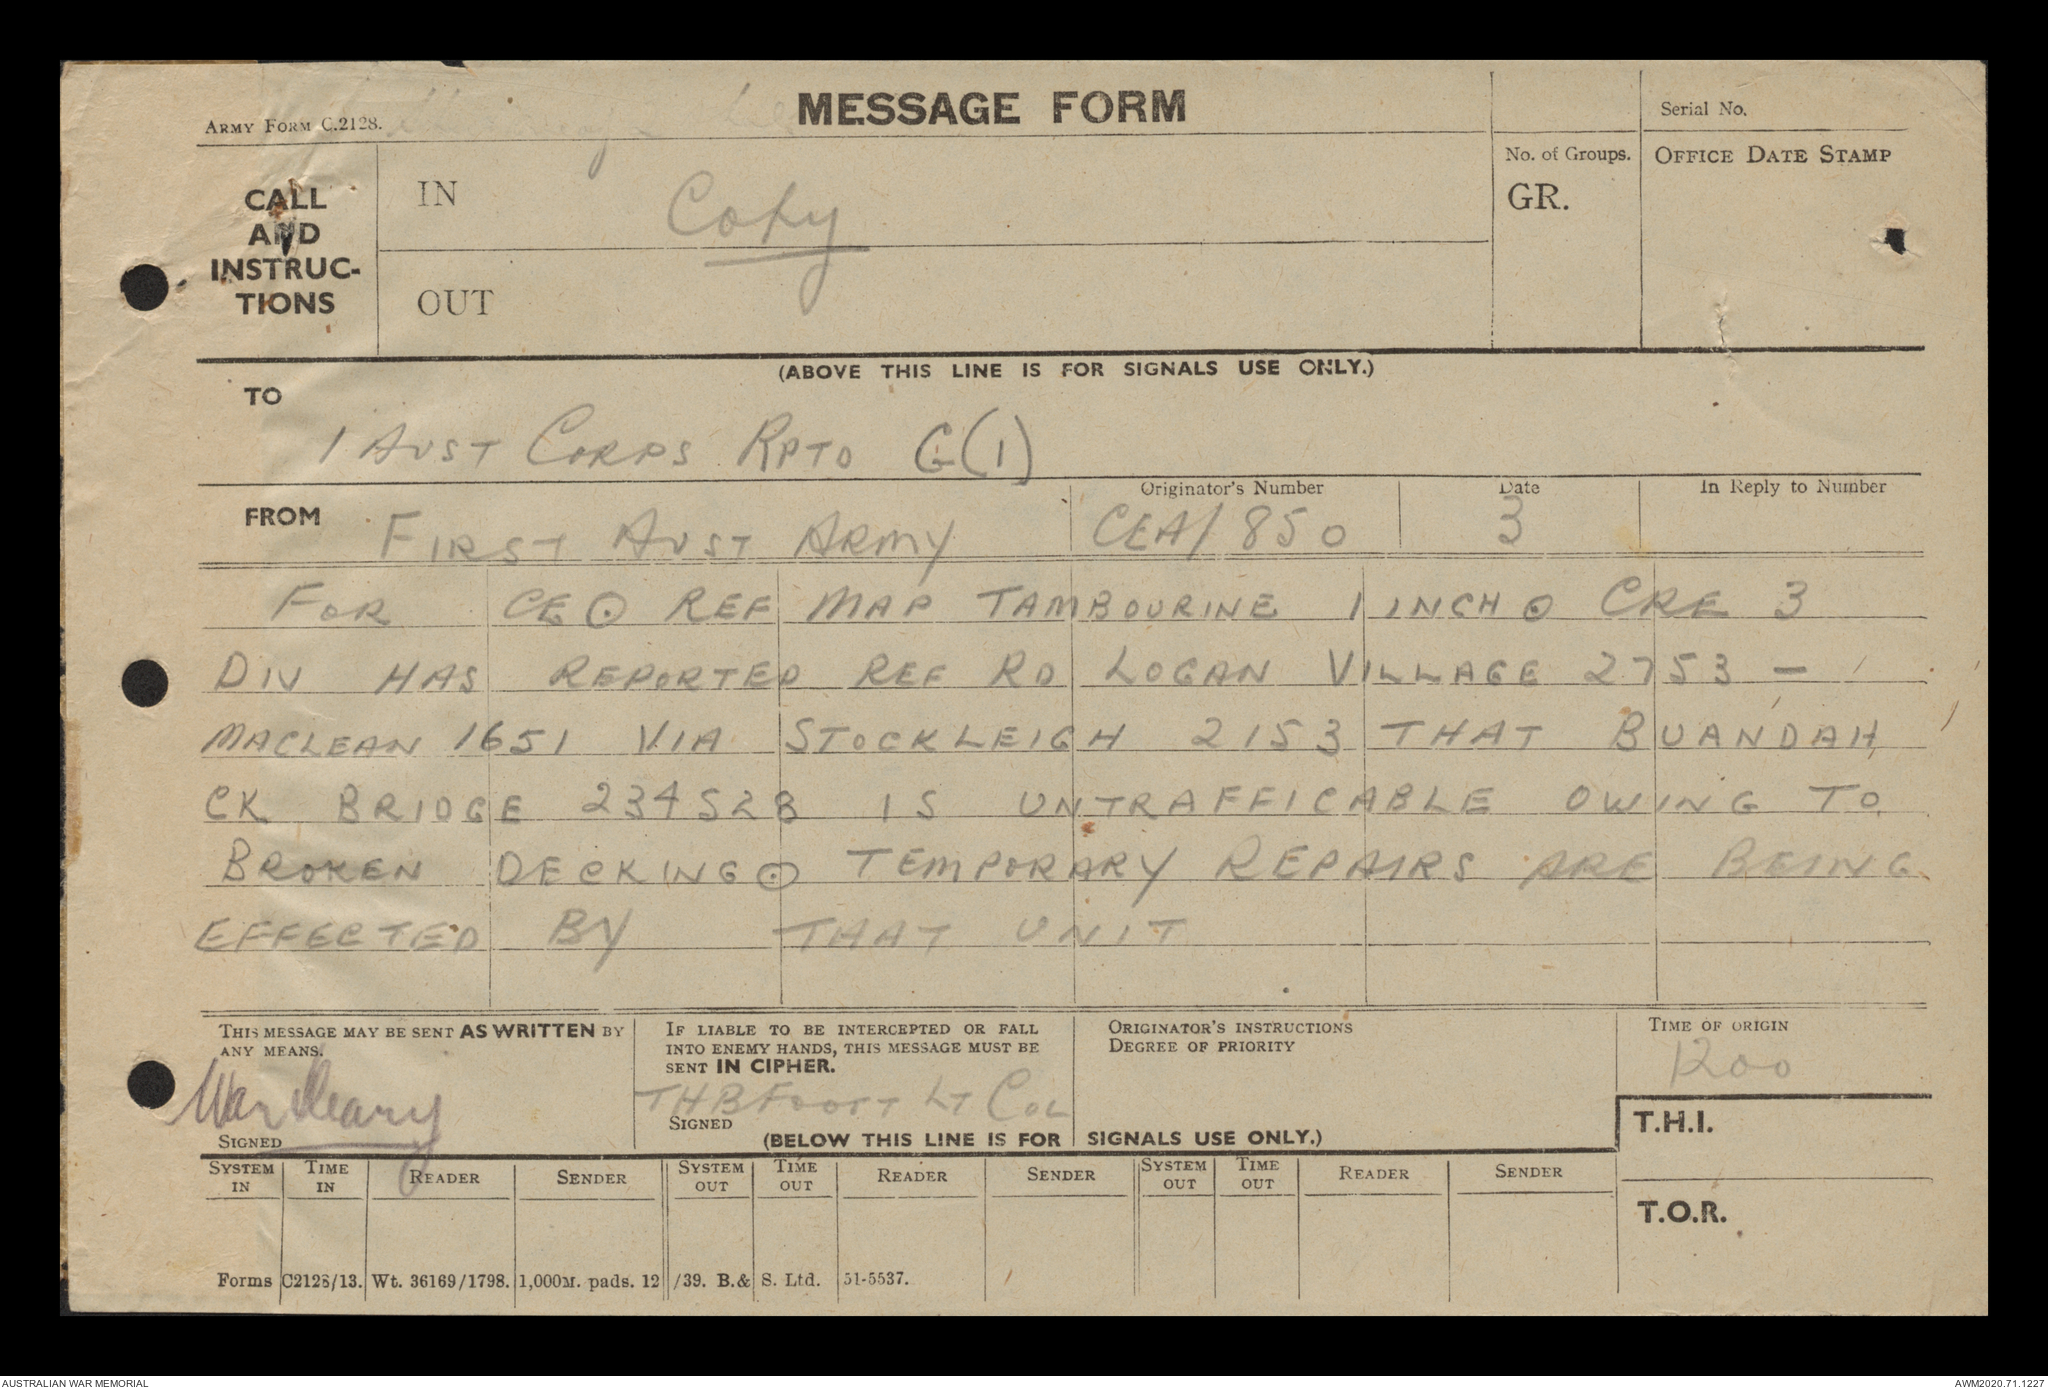 MESSAGE FORM
Army Form C.2128.
Serial No.
CALL AND INSTRUC-TIONS
IN
Copy
OUT
No. of Groups.
GR.
Office Date Stamp
(ABOVE THIS LINE IS FOR SIGNALS USE ONLY.)
TO
1 AUST CORPS RPTD G(1)
Originator's Number
Date
In Reply to Number
FROM FIRST AUST ARMY
CEA/850
3
FOR CE ⊙ REF MAP TAMBOURINE 1 INCH ⊙ CRE 3
DIV HAS REPORTED REF RD LOGAN VILLAGE 2753 –
MACLEAN 1651 VIA STOCKLEIGH 2153 THAT BUANDAH
CK BRIDGE 234528 IS UNTRAFFICABLE OWING TO
BROKEN DECKING ⊙ TEMPORARY REPAIRS ARE BEING
EFFECTED BY THAT UNIT
This message may be sent AS WRITTEN by
any means.
Signed
If liable to be intercepted or fall
into enemy hands, this message must be
sent IN CIPHER.
THB Foott Lt Col
Signed
Originator's instructions
Degree of priority
Time of origin
1200
T.H.I.
(BELOW THIS LINE IS FOR SIGNALS USE ONLY.)
System in
Time in
Reader
Sender
System out
Time out
Reader
Sender
System out
Time out
Reader
Sender
T.O.R.
Forms C2128/13. Wt. 36169/1798. 1,000M. pads. 12/39. B.& S. Ltd. 51-5537.
AUSTRALIAN WAR MEMORIAL
AWM2020.71.1227